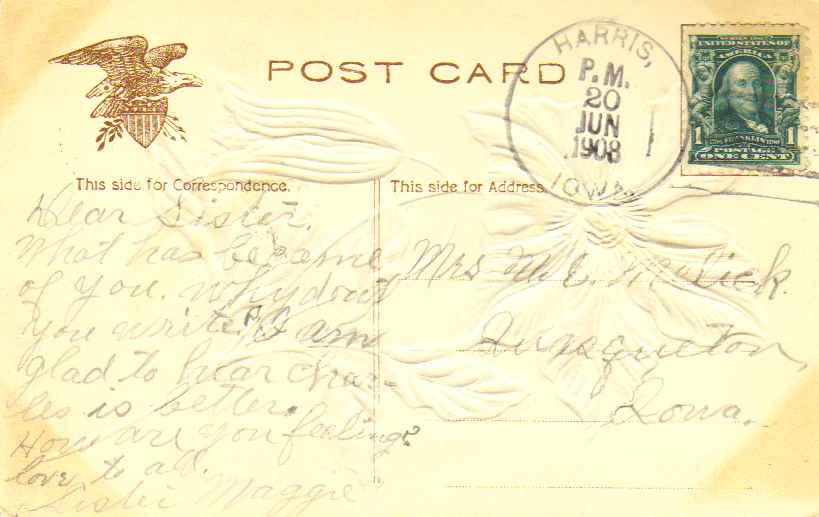 POST CARD
HARRIS,
P.M.
20
JUN
1908
IOWA
SERIES 1902
UNITED STATES OF
AMERICA
1 FRANKLIN 1
POSTAGE
ONE CENT
This side for Correspondence.
This side for Address
Dear Sister.
What has became
of you. why dont
you write? I am
glad to hear Char-
les is better.
How are you feeling?
love to all.
Sister Maggie
Mrs M.E.
Quasqueton,
Iowa.